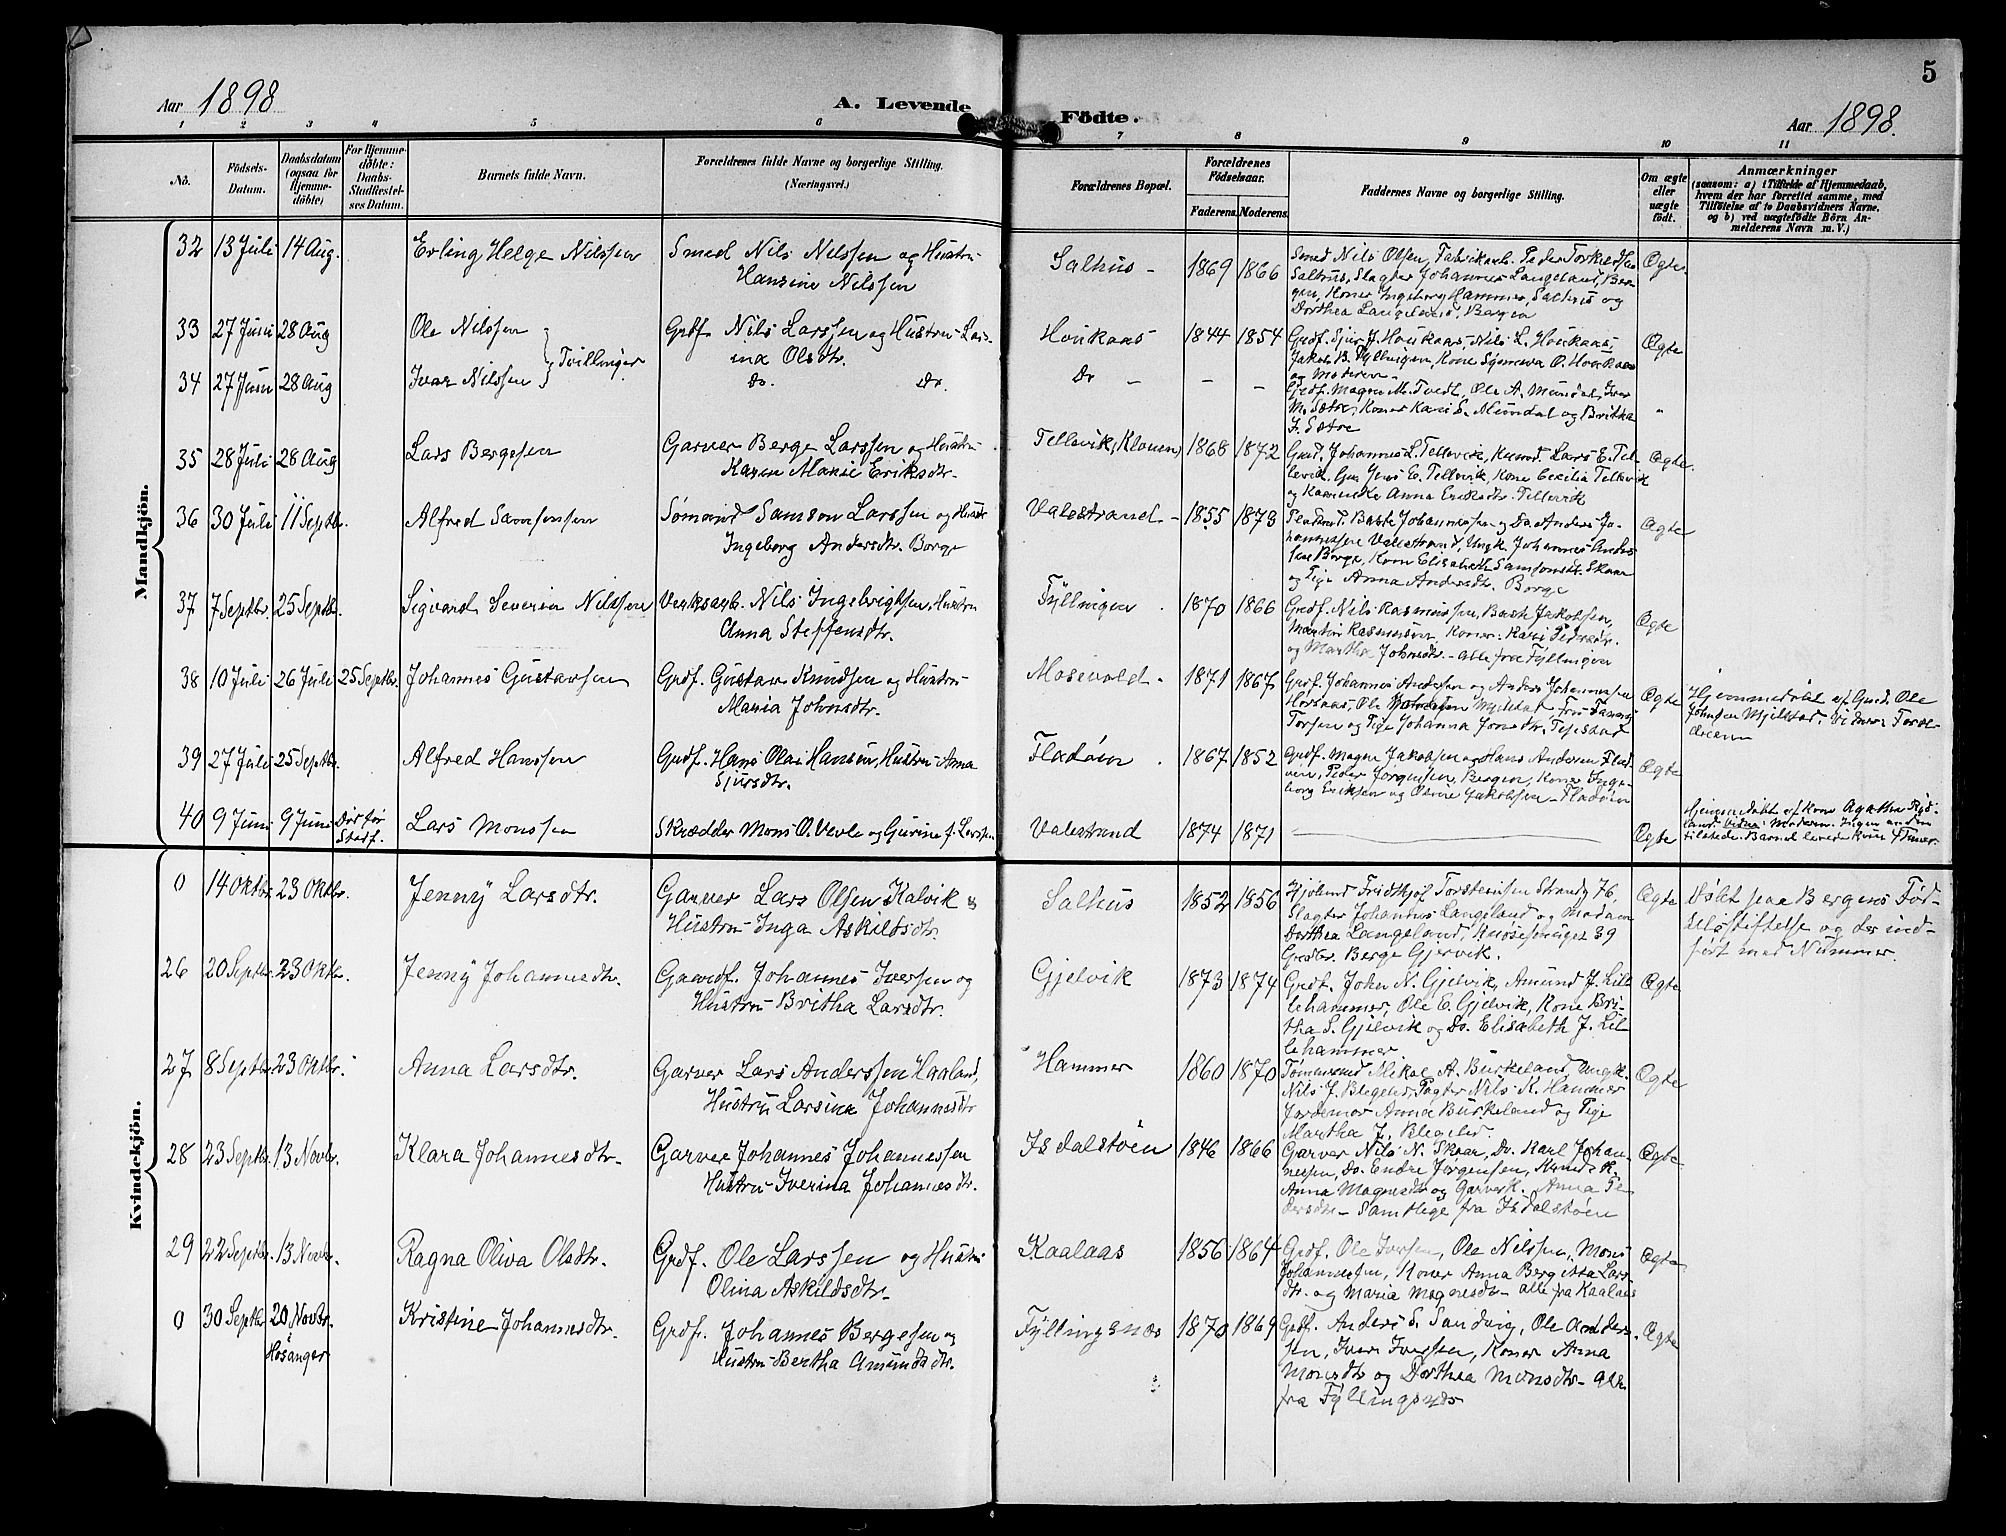 5
Aar 1898
A. Levende
Födte.
Aar 1898.
1 2 3 4 5 6 7 8 9 10 11
No.
Födsels-
Datum.
Daabsdatum
(ogsaa for
Hjemme-
döbte)
For Hjemme-
döbte:
Daabs-
Stadfæstel-
ses Datum.
Barnets fulde Navn.
Forældrenes fulde Navne og borgerlige Stilling.
(Næringsvei.)
Forældrenes Bopæl.
Forældrenes
Födselsaar.
Faderens. Moderens.
Faddernes Navne og borgerlige Stilling.
Om ægte
eller
uægte
födt.
Anmærkninger
(saasom: a) i Tilfælde af Hjemmedaab,
hvem der har forrettet samme, med
Tilföielse af to Daabsvidners Navne,
og b) ved uægtefödte Börn An-
melderens Navn m. V.)
Mandkjön.
32 13 Juli 14 Aug. Erling Helge Nilssen Smed Nils Nilssen og Hustru
Hansine Nilssen
Salhus - 1869 1866 Smed Nils Olsen, Fabrikarb. Peder Torkildsen
Salhus, Slagter Johannes Langeland, Ber-
gen, Koner Ingeborg Hammer, Salhus og
Dorthea Langeland, Bergen
Ægte
33 27 Juni 28 Aug Ole Nilssen Grdf. Nils Larssen og Hustru Lars-
ina Olsdtr.
Tvillinger
Houkaas 1844 1854 Grdf. Sjur J. Houkaas, Nils L. Houkaas,
Jakob B. Fyllingen, Kone Synneva O. Houkaas
og Moderen -
Ægte
34 27 Juni 28 Aug Ivar Nilssen Do. Do.
Do - - - Grdf. Magne M. Tvedt, Ole A. Mundal, Iver
M. Sætre, Koner Kari S. Mundal og Britha
I. Sætre
"
35 28 Juli 28 Aug Lars Bergesen Garver Berge Larssen og Hustru
Karen Marie Eriksdtr.
Tellevik, (Klauen) 1868 1872 Grdf. Johannes L. Tellevik, Lars E. Tel-
levik, Jens E. Tellevik, Kone Cecilia Tellevik
og Anna Eriksdtr. Tellevik
Ægte.
36 30 Juli 11 Septbr. Alfred Samsonsen Sömand Samson Larssen og Hustr.
Ingeborg Andersdtr. Borge
Valestrand - 1855 1873 Baste Johannessen og Do Anders Jo-
hannessen Valestrand, Ungk. Johannes Anders-
sen Borge, Kone Elisabeth Samsonsdtr. Skaar
og Pige Anna Andersdtr. Borge
Ægte
37 7 Septbr. 25 Septbr. Sigvard Severin Nilssen Verksarb. Nils Ingebrigtsen, Hustru
Anna Steffensdtr.
Fyllingen 1870 1866 Grdf. Nils Rasmussen, Baste Jakobsen,
Martin Rasmussen, Koner: Kari Pedersdtr.
og Martha Johnsdtr. - alle fra Fyllingen
Ægte
38 10 Juli 26 Juli 25 Septbr. Johannes Gustavsen Grdf. Gustav Knudsen og Hustru
Maria Johnsdtr.
Mosevold - 1871 1867 Grdf. Johannes Andersen og Anders Johannessen
Horsaas, Ole Mjelstad, Fru Fanny
Torsen og Pige Johanna Jonsdtr. Tepstad
Ægte
Hjemmedöbt af Grdf. Ole
Johnsen Mjelstad. Vidner: Foræl-
drene
39 27 Juli 25 Septbr. Alfred Hanssen Grdf. Hans Olai Hansen, Hustru Anna
Sjursdtr.
Fladöen 1867 1852 Grdf. Magne Jakobsen og Hans Andersen Flad-
öen, Peder Jörgensen, Bergen, Koner Inge-
borg Eriksen og Jakobsen - Fladöen
Ægte
40 9 Juni 9 Juni Död för
Stadf.
Lars Monssen Skrædder Mons O. Vevle og Gurine f. Larssen
Valestrand 1874 1871
Ægte
Hjemmedöbt af Kone Agatha
Vidne: Moderen. Ingen anden
tilstede. Barnet levede kun 4 Timer.
Kvindekjön.
0 14 Oktbr. 23 Oktbr. Jenny Larsdtr. Garver Lars Olsen Kalvik &
Hustru Inga Askildsdtr.
Salhus 1852 1856 Fridthjof Torsteinsen Strandg 76,
Slagter Johannes Langeland og Madam
Dorthea Langeland, 39
Grdbr. Berge Gjervik.
Ægte
Döbt paa Bergens Föd-
selsstiftelse og der ind-
fört med Nummer.
26 20 Septbr. 23 Oktbr. Jenny Johannesdtr. Gaardf. Johannes Iversen og
Hustru Britha Larsdtr.
Gjelvik 1873 1874 Grdf. Johan N. Gjelvik, Amund J. Lil-
lehammer, Ole E. Gjelvik, Kone Bri-
tha S. Gjelvik og Do. Elisabeth J. Lil-
lehammer.
Ægte
27 8 Septbr. 23 Oktbr. Anna Larsdtr. Garver Lars Anderssen Haaland,
Hustru Larsina Johannesdtr
Hammer 1860 1870 Tömmermd Mikal A. Burkeland, Ungk.
Nils J. Blegelid, Nils K. Hammer
Jordemor Anna Burkeland og Pige
Martha J. Blegelid.
Ægte
28 23 Septbr. 13 Novbr. Klara Johannesdtr. Garver Johannes Johannessen
Hustru Iverina Johannesdtr.
Isdalstöen 1846 1866 Garver Nils N. Skaar, Do. Karl Johan-
nessen, Do. Endre Jörgensen, K.
Anna Magnesdtr og Garverk. Anna Pe-
dersdtr - Samtlige fra Isdalstöen
Ægte
29 22 Septbr. 13 Novbr. Ragna Oliva Olsdtr. Grdf. Ole Larssen og Hustru
Olina Askildsdtr.
Kaalaas 1856 1864 Grdf. Ole Iversen, Ole Nilssen, Mons
Johannessen, Koner Anna Bergitta Lars-
dtr. og Maria Magnesdtr - alle fra Kaalaas
Ægte
0 30 Septbr 20 Novbr.
Hosanger
Kristine Johannesdtr. Grdf. Johannes Bergesen og
Hustru Bertha Amundsdtr.
Fyllingsnes 1870 1869 Grdf. Anders S. Sandvig, Ole Anders-
sen, Iver Iversen, Koner Anna
Monsdtr og Dorthea Monsdtr - alle
fra Fyllingsnes
Ægte